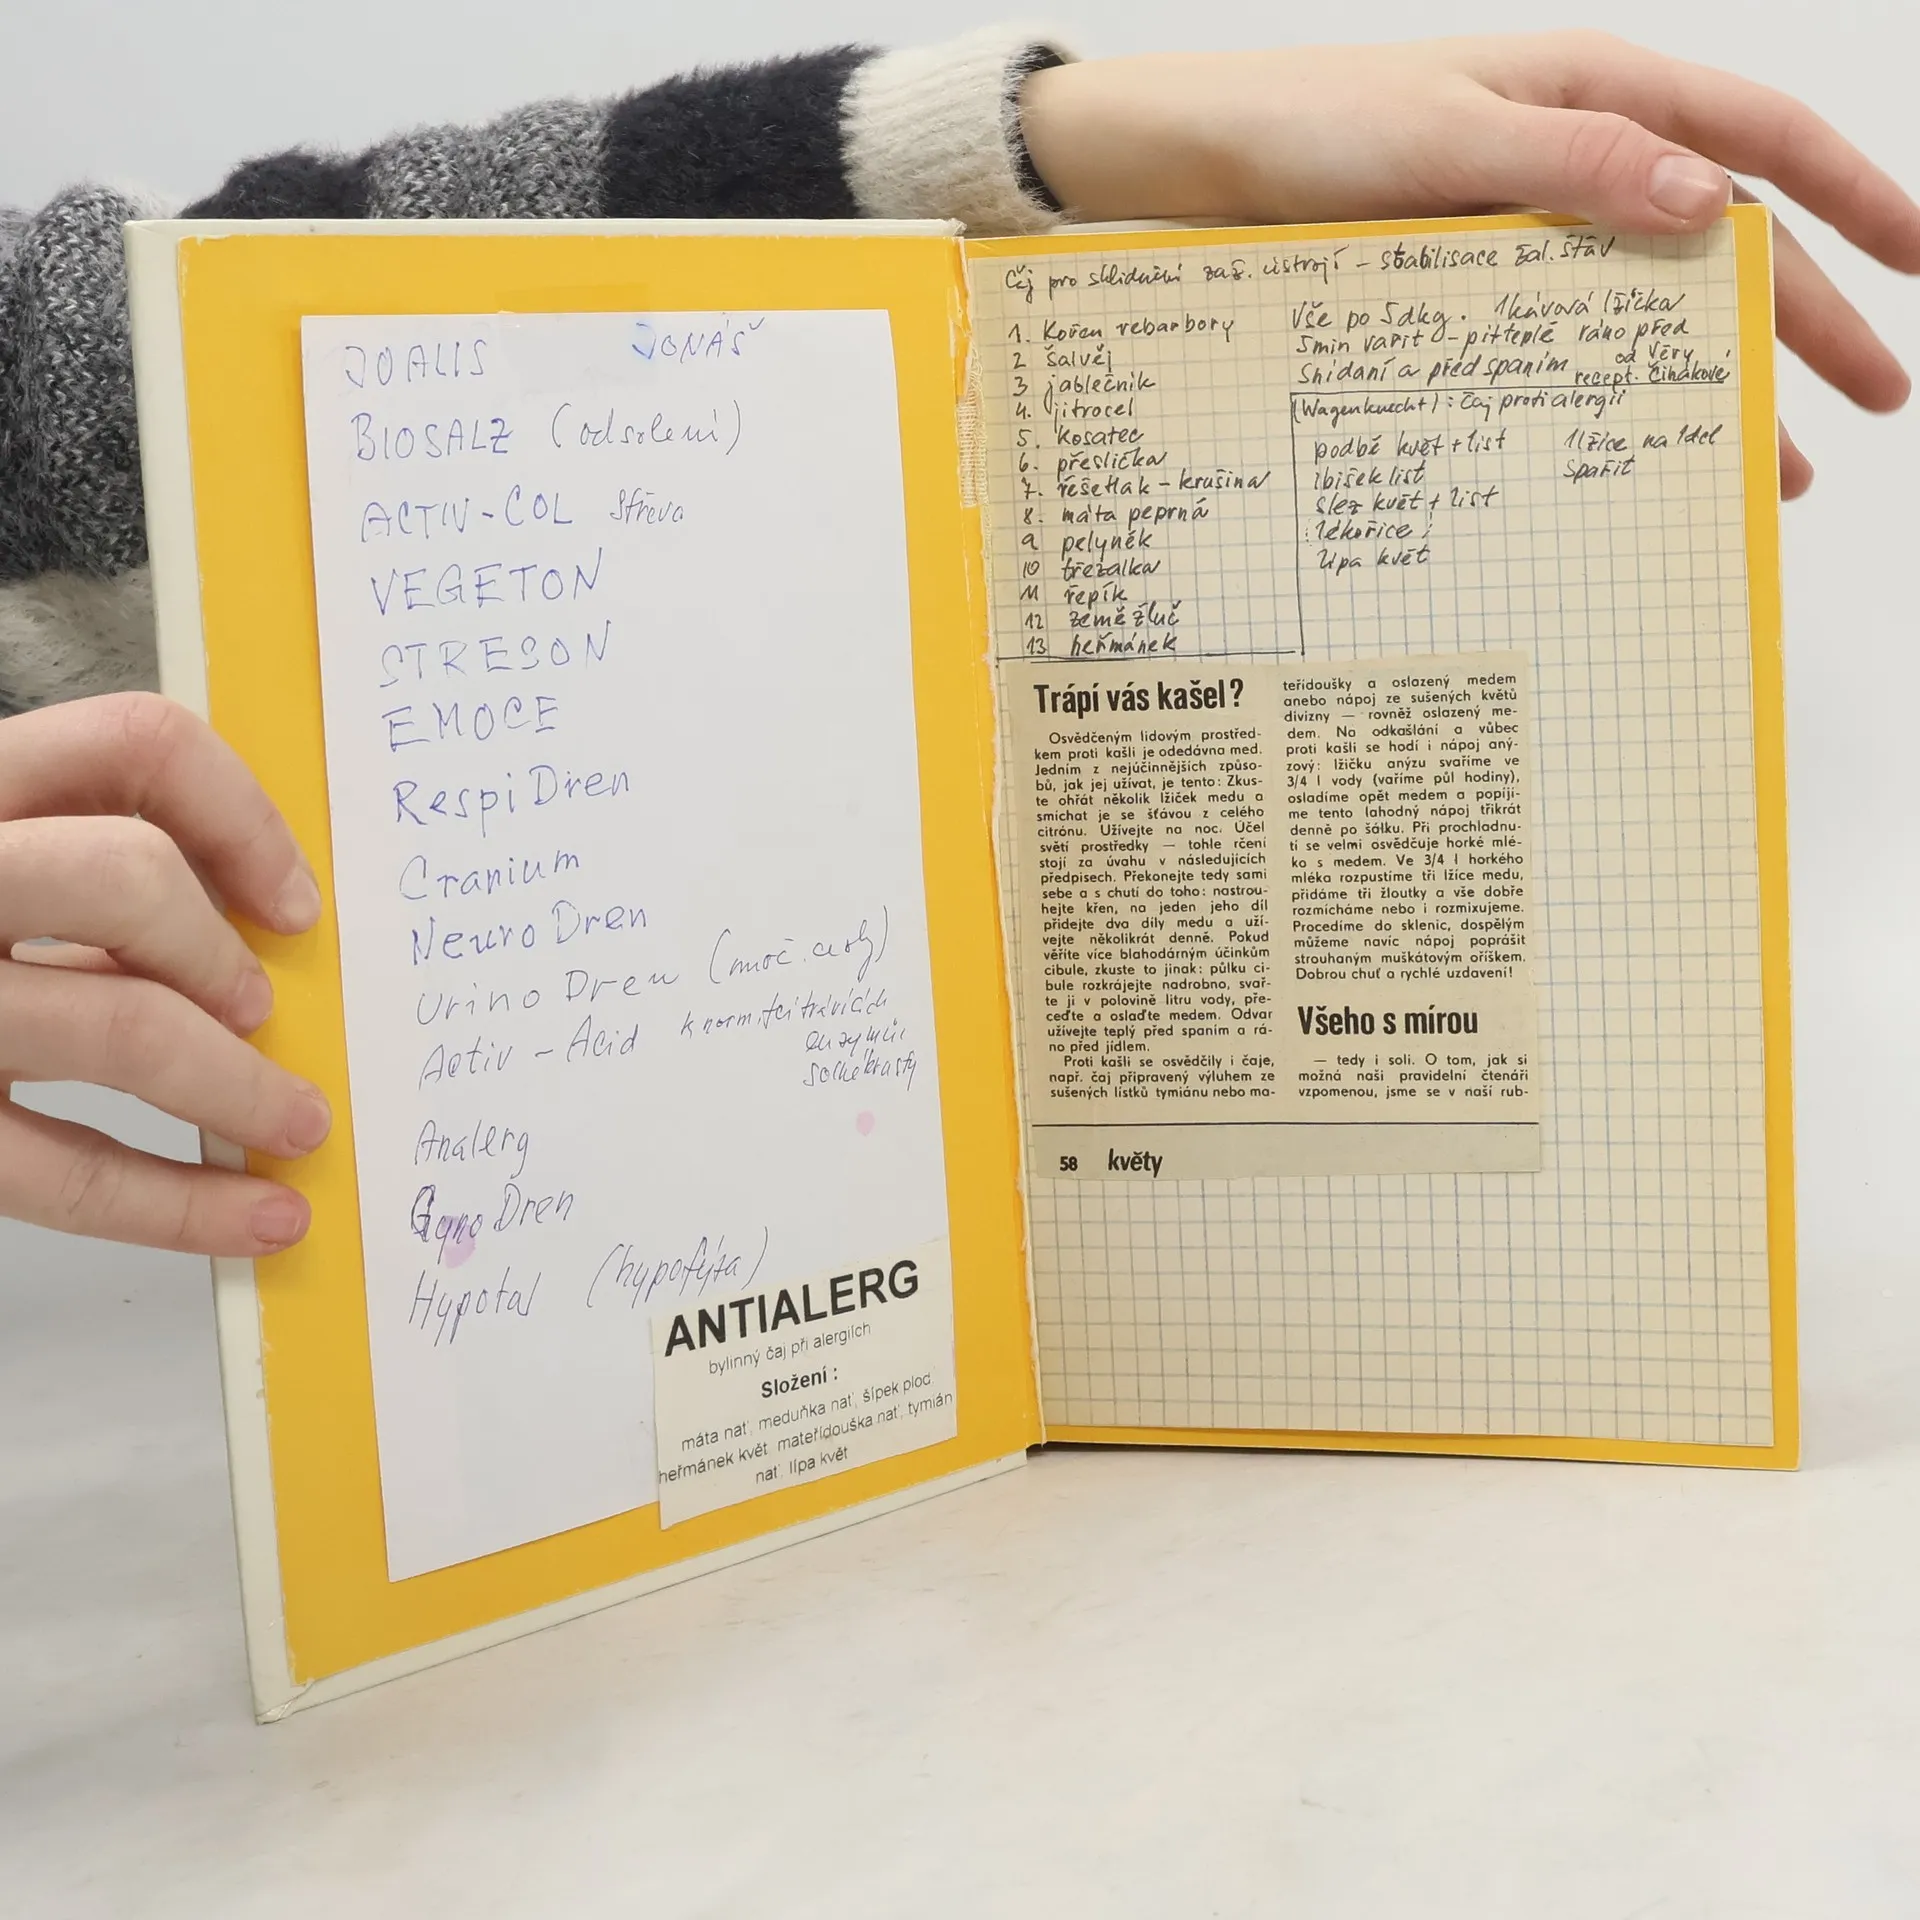 JOALIS JONÁŠ
BIOSALZ (odsolení)
ACTIV-COL střeva
VEGETON
STRESON
EMOCE
RespiDren
Cranium
NeuroDren
Urino Dren (moč. cesty)
Activ - Acid k norm. trávících
enzymů
solné krusty
Analerg
GynoDren
Hypotal (hypofýza)
ANTIALERG
bylinný čaj při alergiích
Složení :
máta nať, meduňka nať, šípek plod,
heřmánek květ, mateřídouška nať, tymián
nať, lípa květ
Čaj pro sklidnění zaž. ústrojí - stabilisace žal. šťáv
1. Kořen rebarbory
2 šalvěj
3 jablečník
4. jitrocel
5. kosatec
6. přeslička
7. řešetlak - krušina
8. máta peprná
9 pelyněk
10 třezalka
11 řepík
12 zeměžluč
13 heřmánek
Vše po 5dkg. 1kávová lžička
5min vařit - pít teplé ráno před
snídaní a před spaním od Věry
recept. Čihákové
(Wagenknecht) : čaj proti alergii
podbě květ + list 1lžíce na 1dcl
ibišek list spařit
slez květ + list
lékořice
lípa květ
Trápí vás kašel?
Osvědčeným lidovým prostřed-
kem proti kašli je odedávna med.
Jedním z nejúčinnějších způso-
bů, jak jej užívat, je tento: Zkus-
te ohřát několik lžiček medu a
smíchat je se šťávou z celého
citrónu. Užívejte na noc. Účel
světí prostředky — tohle rčení
stojí za úvahu v následujících
předpisech. Překonejte tedy sami
sebe a s chutí do toho: nastrou-
hejte křen, na jeden jeho díl
přidejte dva díly medu a uží-
vejte několikrát denně. Pokud
věříte více blahodárným účinkům
cibule, zkuste to jinak: půlku ci-
bule rozkrájejte nadrobno, svař-
te ji v polovině litru vody, pře-
ceďte a oslaďte medem. Odvar
užívejte teplý před spaním a rá-
no před jídlem.
Proti kašli se osvědčily i čaje,
např. čaj připravený výluhem ze
sušených lístků tymiánu nebo ma-
teřídoušky a oslazený medem
anebo nápoj ze sušených květů
divizny — rovněž oslazený me-
dem. Na odkašlání a vůbec
proti kašli se hodí i nápoj aný-
zový: lžičku anýzu svaříme ve
3/4 l vody (vaříme půl hodiny),
osladíme opět medem a popíjí-
me tento lahodný nápoj třikrát
denně po šálku. Při prochladnu-
tí se velmi osvědčuje horké mlé-
ko s medem. Ve 3/4 l horkého
mléka rozpustíme tři lžíce medu,
přidáme tři žloutky a vše dobře
rozmícháme nebo i rozmixujeme.
Procedíme do sklenic, dospělým
můžeme navíc nápoj poprášit
strouhaným muškátovým oříškem.
Dobrou chuť a rychlé uzdavení!
Všeho s mírou
— tedy i soli. O tom, jak si
možná naši pravidelní čtenáři
vzpomenou, jsme se v naší rub-
58 květy